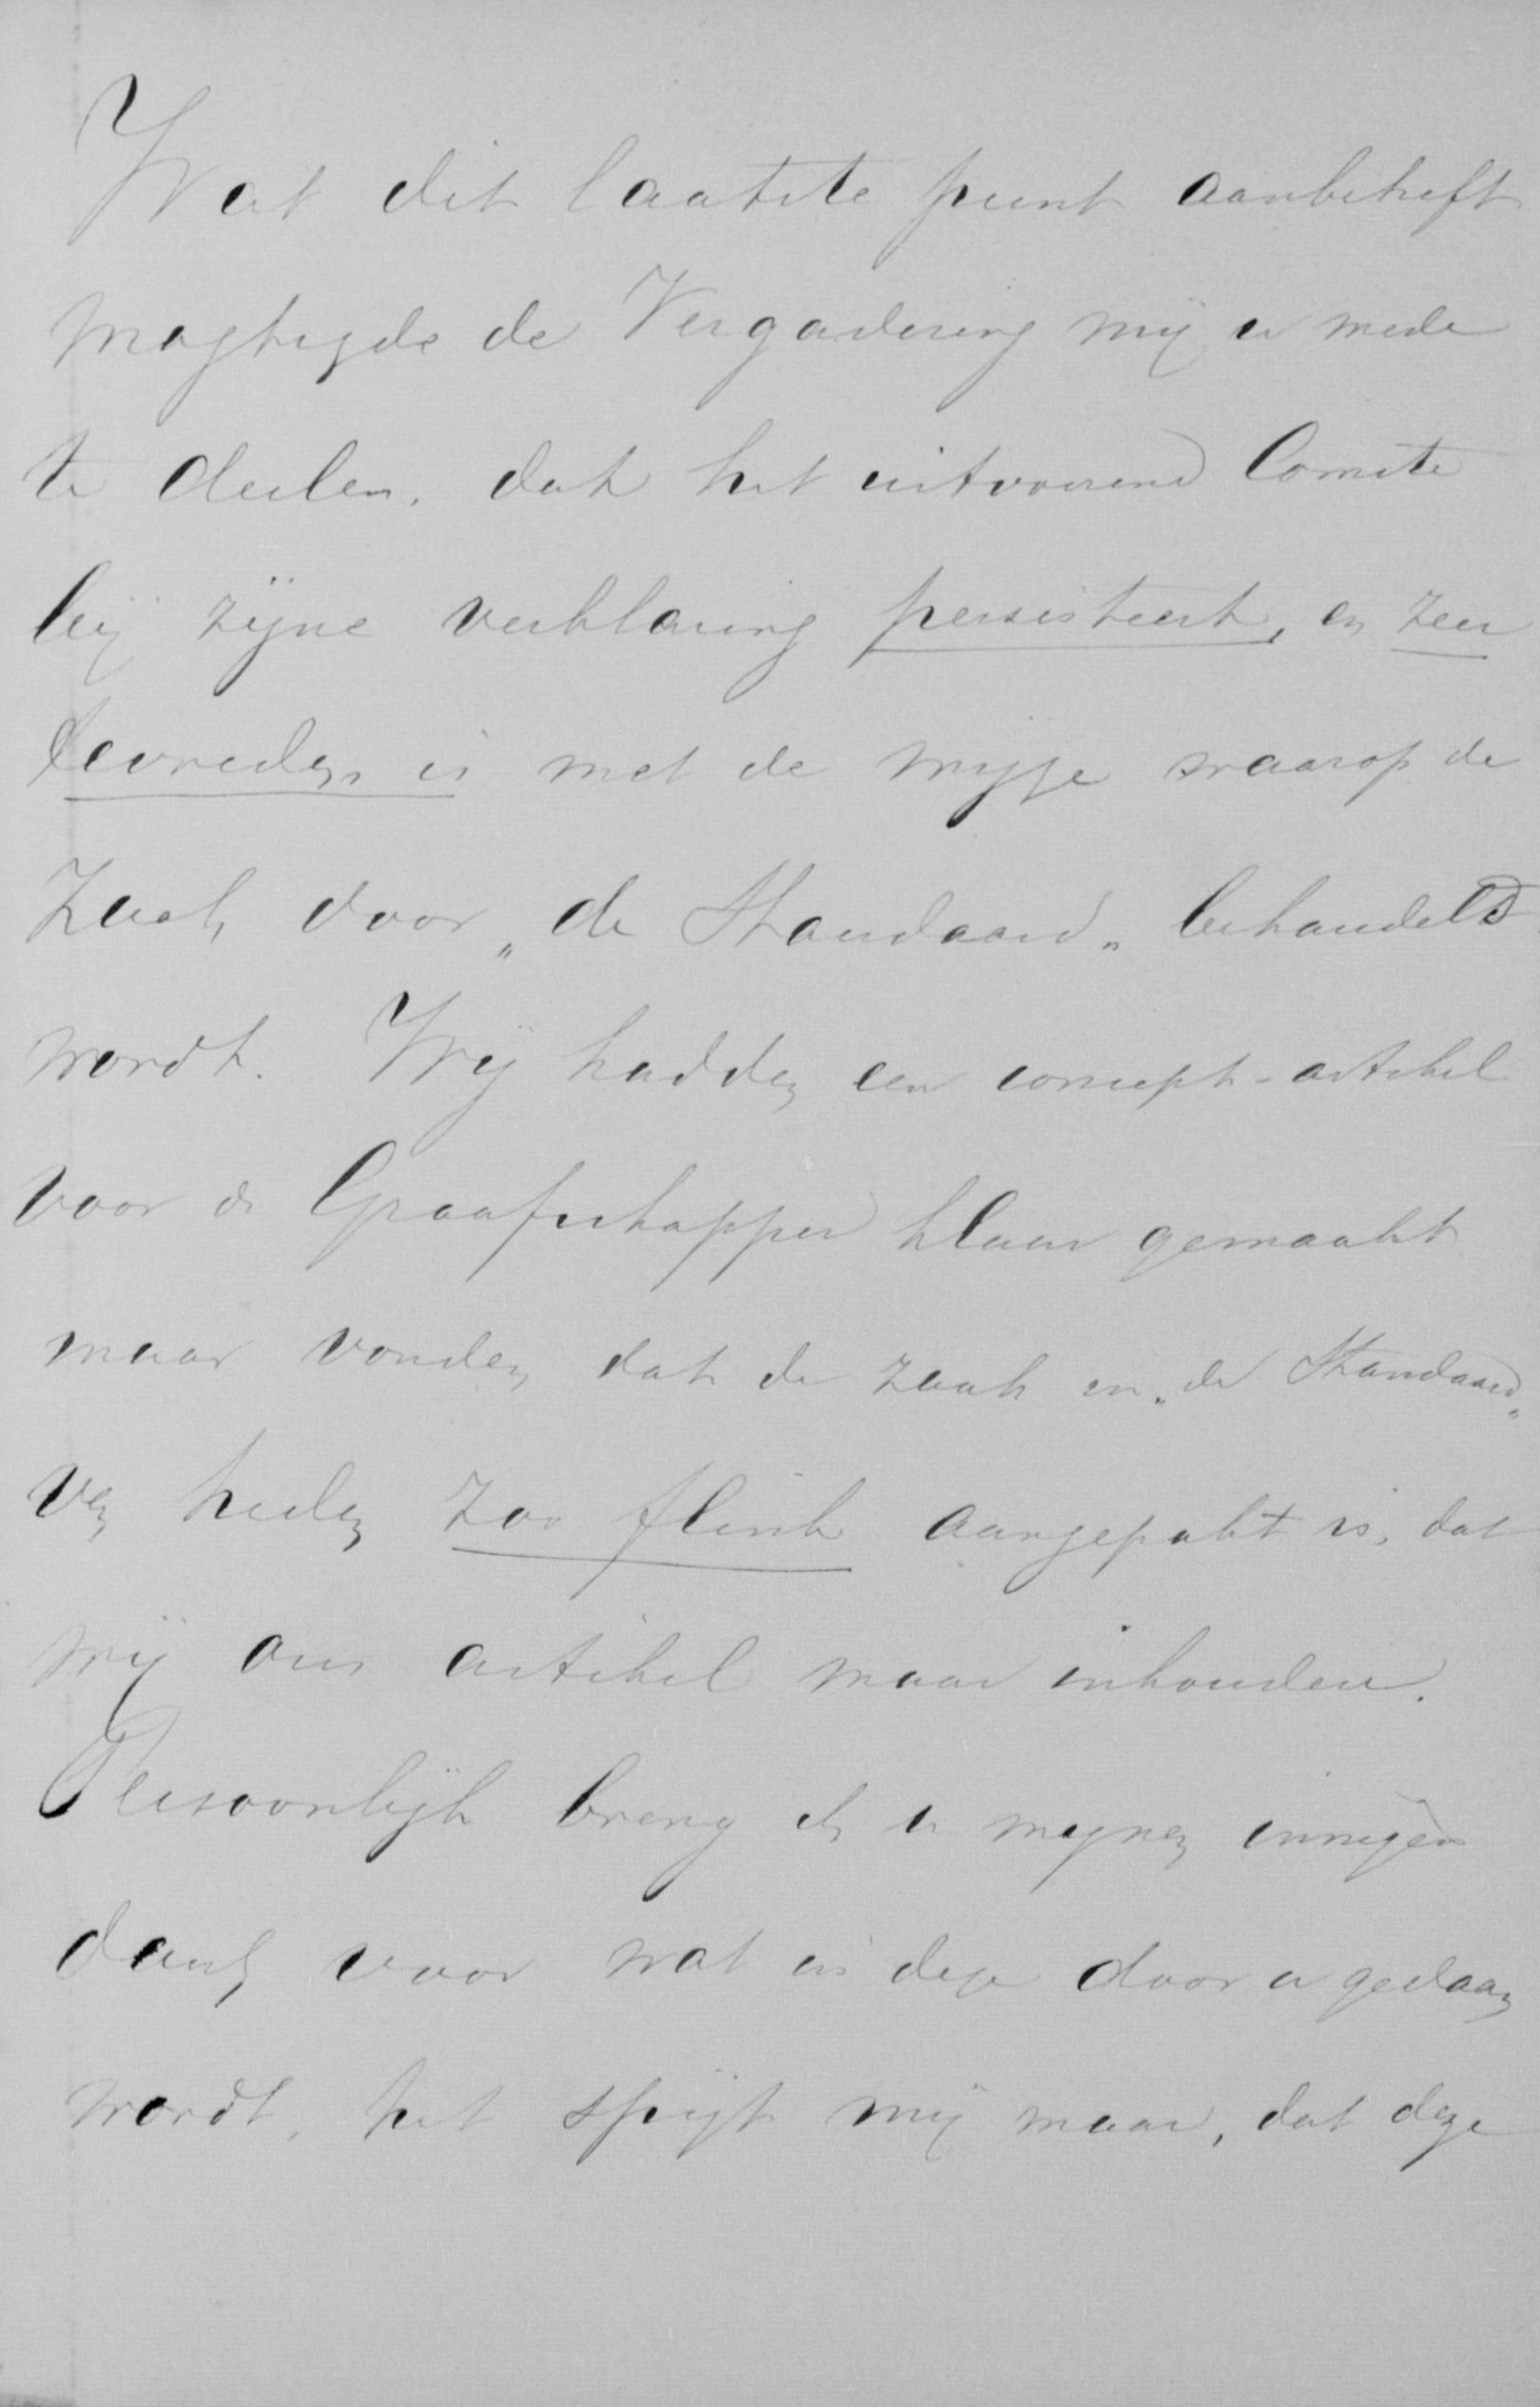 Wat dit laatste punt aanbetreft
magtigde de Vergadering mij u mede
te deelen, dat het uitvoerend Comite
bij zijne verklaring persisteert, en zeer
tevreden is met de wijze waarop de
zaak door „de Standaard„ behandeld
wordt. Wij hadden een concept-artikel
voor de Graafschapper klaar gemaakt
maar vonden dat de zaak in „de Standaard„
van heden zoo flink aangepakt is, dat
wij ons artikel maar inhouden.
Persoonlijk breng ik u mijnen innigen
dank voor wat in deze door u gedaan
wordt, het spijt mij maar, dat deze